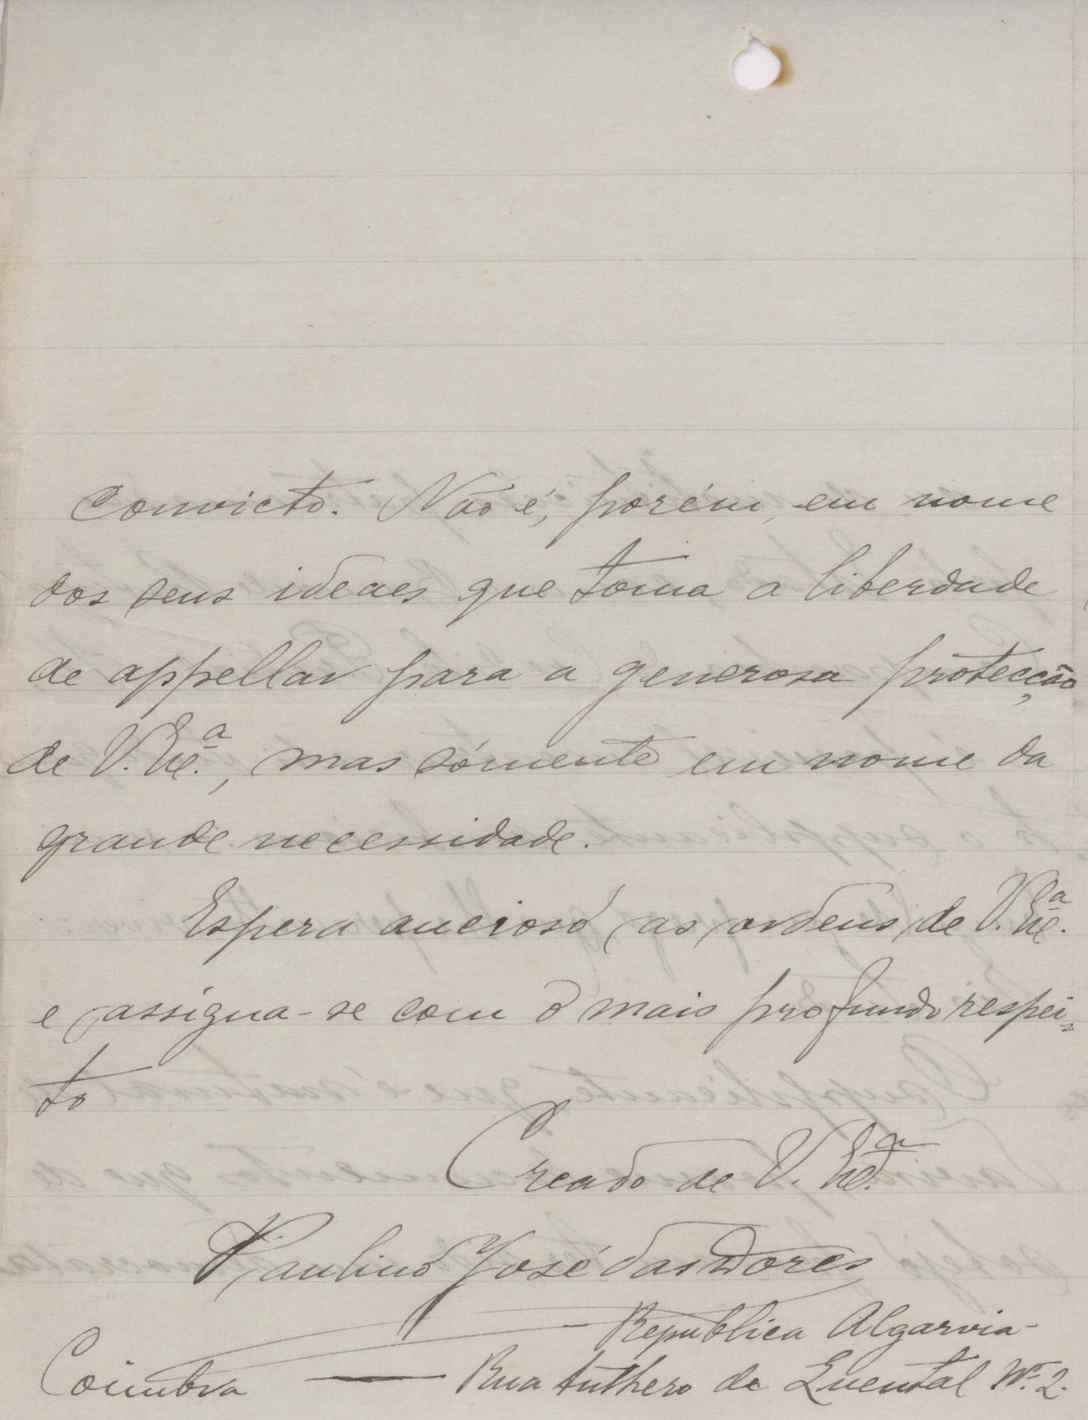 convicto. Não é, porém, em nome
dos seus ideaes que toma a liberdade
de appellar para a generosa protecção
de V. Ex.ª, mas sómente em nome da
grande necessidade.
Espera ancioso as ordens de V. Ex.ª
e assigna-se com o mais profundo respei-
to
Creado de V. Ex.ª
Paulino José das Dores
Republica Algarvia-
Coimbra — Rua Anthero de Quental Nº 2.